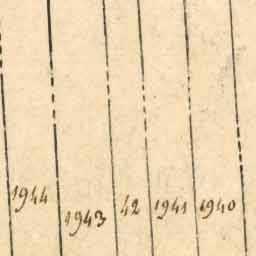 1944 1943 42 1941 1940